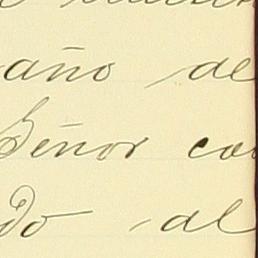 año de
Señor co
do al